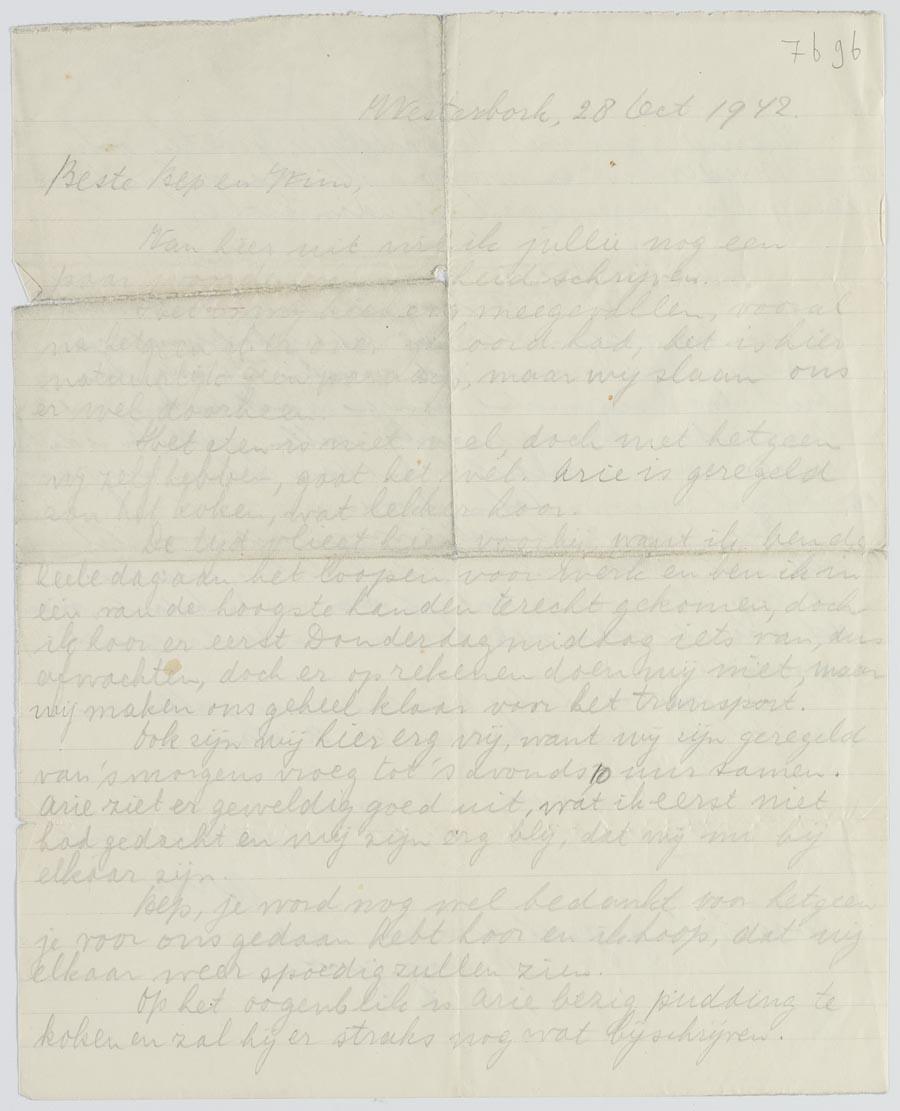 7b 9b
Westerbork, 28 Oct 1942.
Beste Bep en Wim,
Van hier uit wil ik jullie nog een
paar schrijven.
Het is mij hier erg meegevallen, vooral
na hetgeen ik er over had, het is hier
natuurlijk geen paradijs, maar wij slaan ons
er wel doorheen.
Het eten is niet veel, doch met hetgeen
wij zelf hebben, gaat het wel. Arie is geregeld
aan het koken, wat lekker hoor.
De tijd vliegt hier voorbij want ik ben de
heele dag aan het loopen voor werk en ben ik in
één van de hoogste handen terecht gekomen, doch
ik hoor er eerst Donderdagmiddag iets van, dus
afwachten, doch er op rekenen doen wij niet, maar
wij maken ons geheel klaar voor het transport.
Ook zijn wij hier erg vrij, want wij zijn geregeld
van 's morgens vroeg tot 's avonds 10 uur samen.
Arie ziet er geweldig goed uit, wat ik eerst niet
had gedacht en wij zijn erg blij, dat wij nu bij
elkaar zijn.
Bep, je word nog wel bedankt voor hetgeen
je voor ons gedaan hebt hoor en ik hoop, dat wij
elkaar weer spoedig zullen zien.
Op het oogenblik is Arie bezig pudding te
koken en zal hij er straks nog wat bijschrijven.